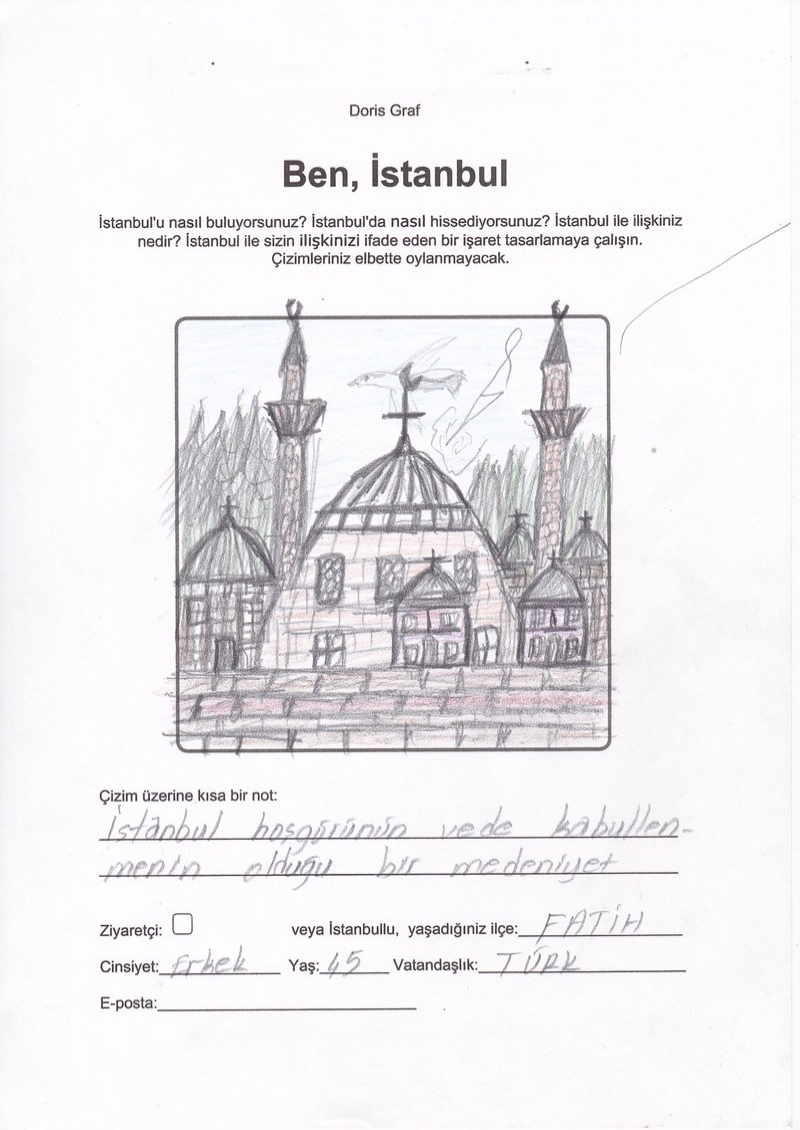 Doris Graf
Ben, İstanbul
İstanbul'u nasıl buluyorsunuz? İstanbul'da nasıl hissediyorsunuz? İstanbul ile ilişkiniz
nedir? İstanbul ile sizin ilişkinizi ifade eden bir işaret tasarlamaya çalışın.
Çizimleriniz elbette oylanmayacak.
Çizim üzerine kısa bir not:
İstanbul hoşgörünün vede kabullen-
menin olduğu bir medeniyet
Ziyaretçi: veya İstanbullu, yaşadığınız ilçe: FATİH
Cinsiyet: Erkek Yaş: 45 Vatandaşlık: TÜRK
E-posta: